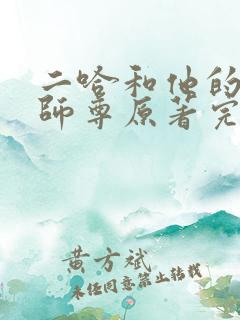 二哈和他的
師尊原著完
黄方斌
未经同意禁止转载